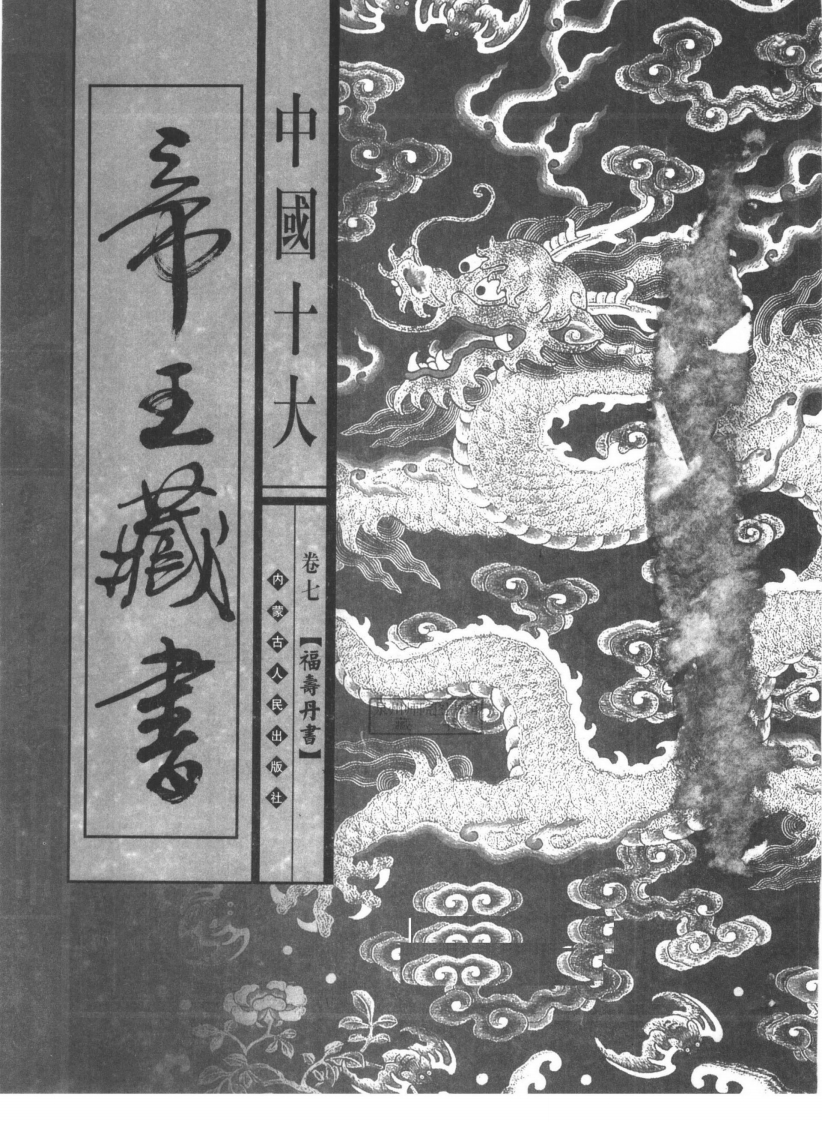 中國十大
帝王藏書
卷七
【福壽丹書】
内蒙古人民出版社
藏